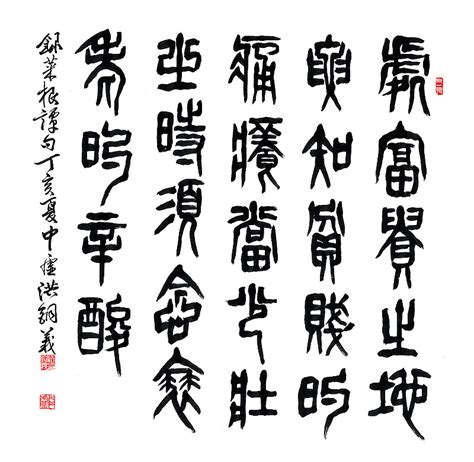 處富貴之地
要知貧賤的
痛癢當少壯
之時須念衰
老的辛酸
錄菜根譚句丁亥夏中壢洪義